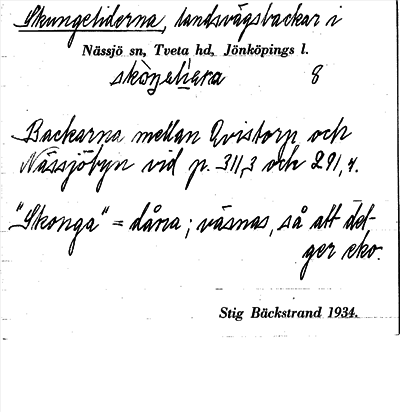 Skungeliderna, landsvägsbackar i
Nässjö sn, Tveta hd, Jönköpings l.
8
Backarna mellan Qvistorp och
Nässjöbyn vid p. 311,3 och 291,4.
"Skonga" = dåna; väsnas, så att det
ger eko.
Stig Bäckstrand 1934.